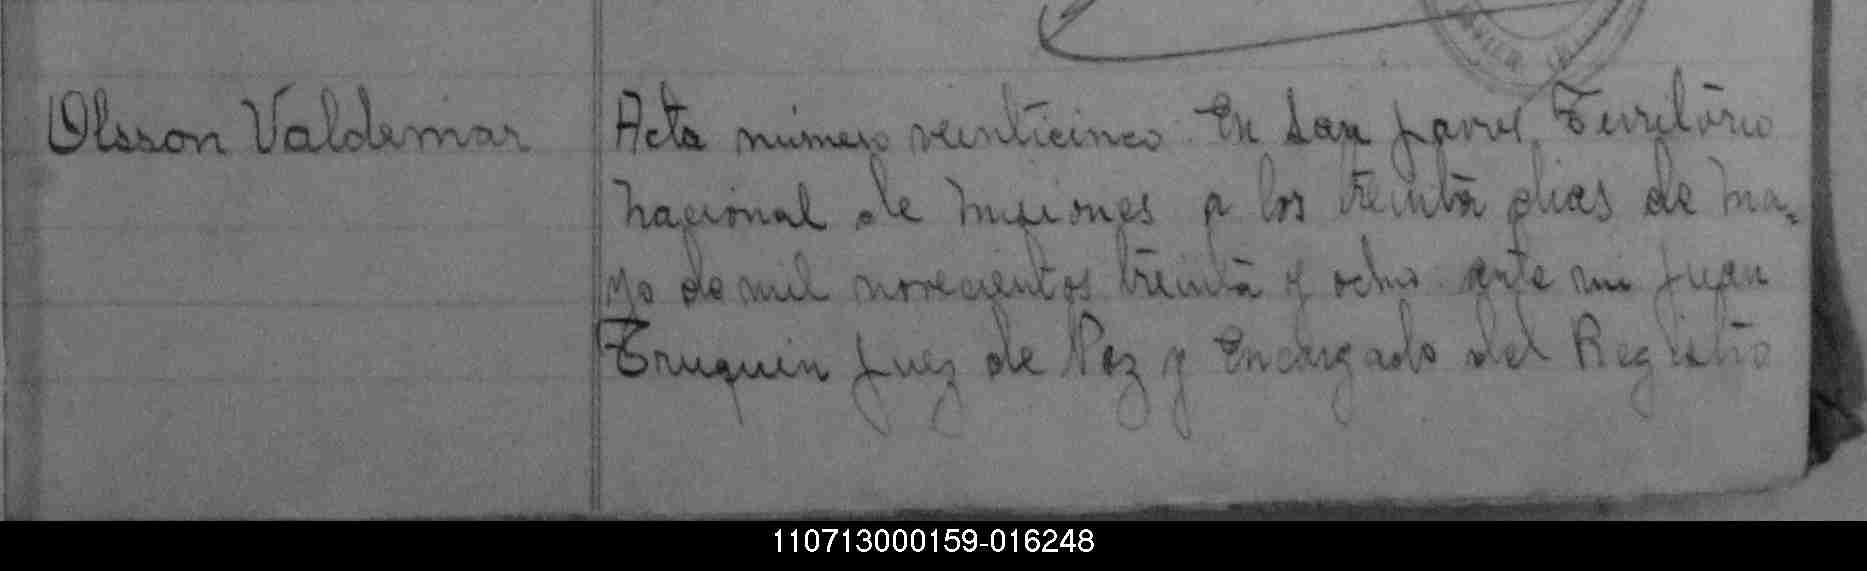 Olsson Valdemar
Acta número veinticinco. En San Javier, Territorio
Nacional de Misiones a los treinta dias de Ma-
yo de mil novecientos treinta y ocho ante mi Juan
Truquin Juez de Paz y Encargado del Registro
110713000159-016248